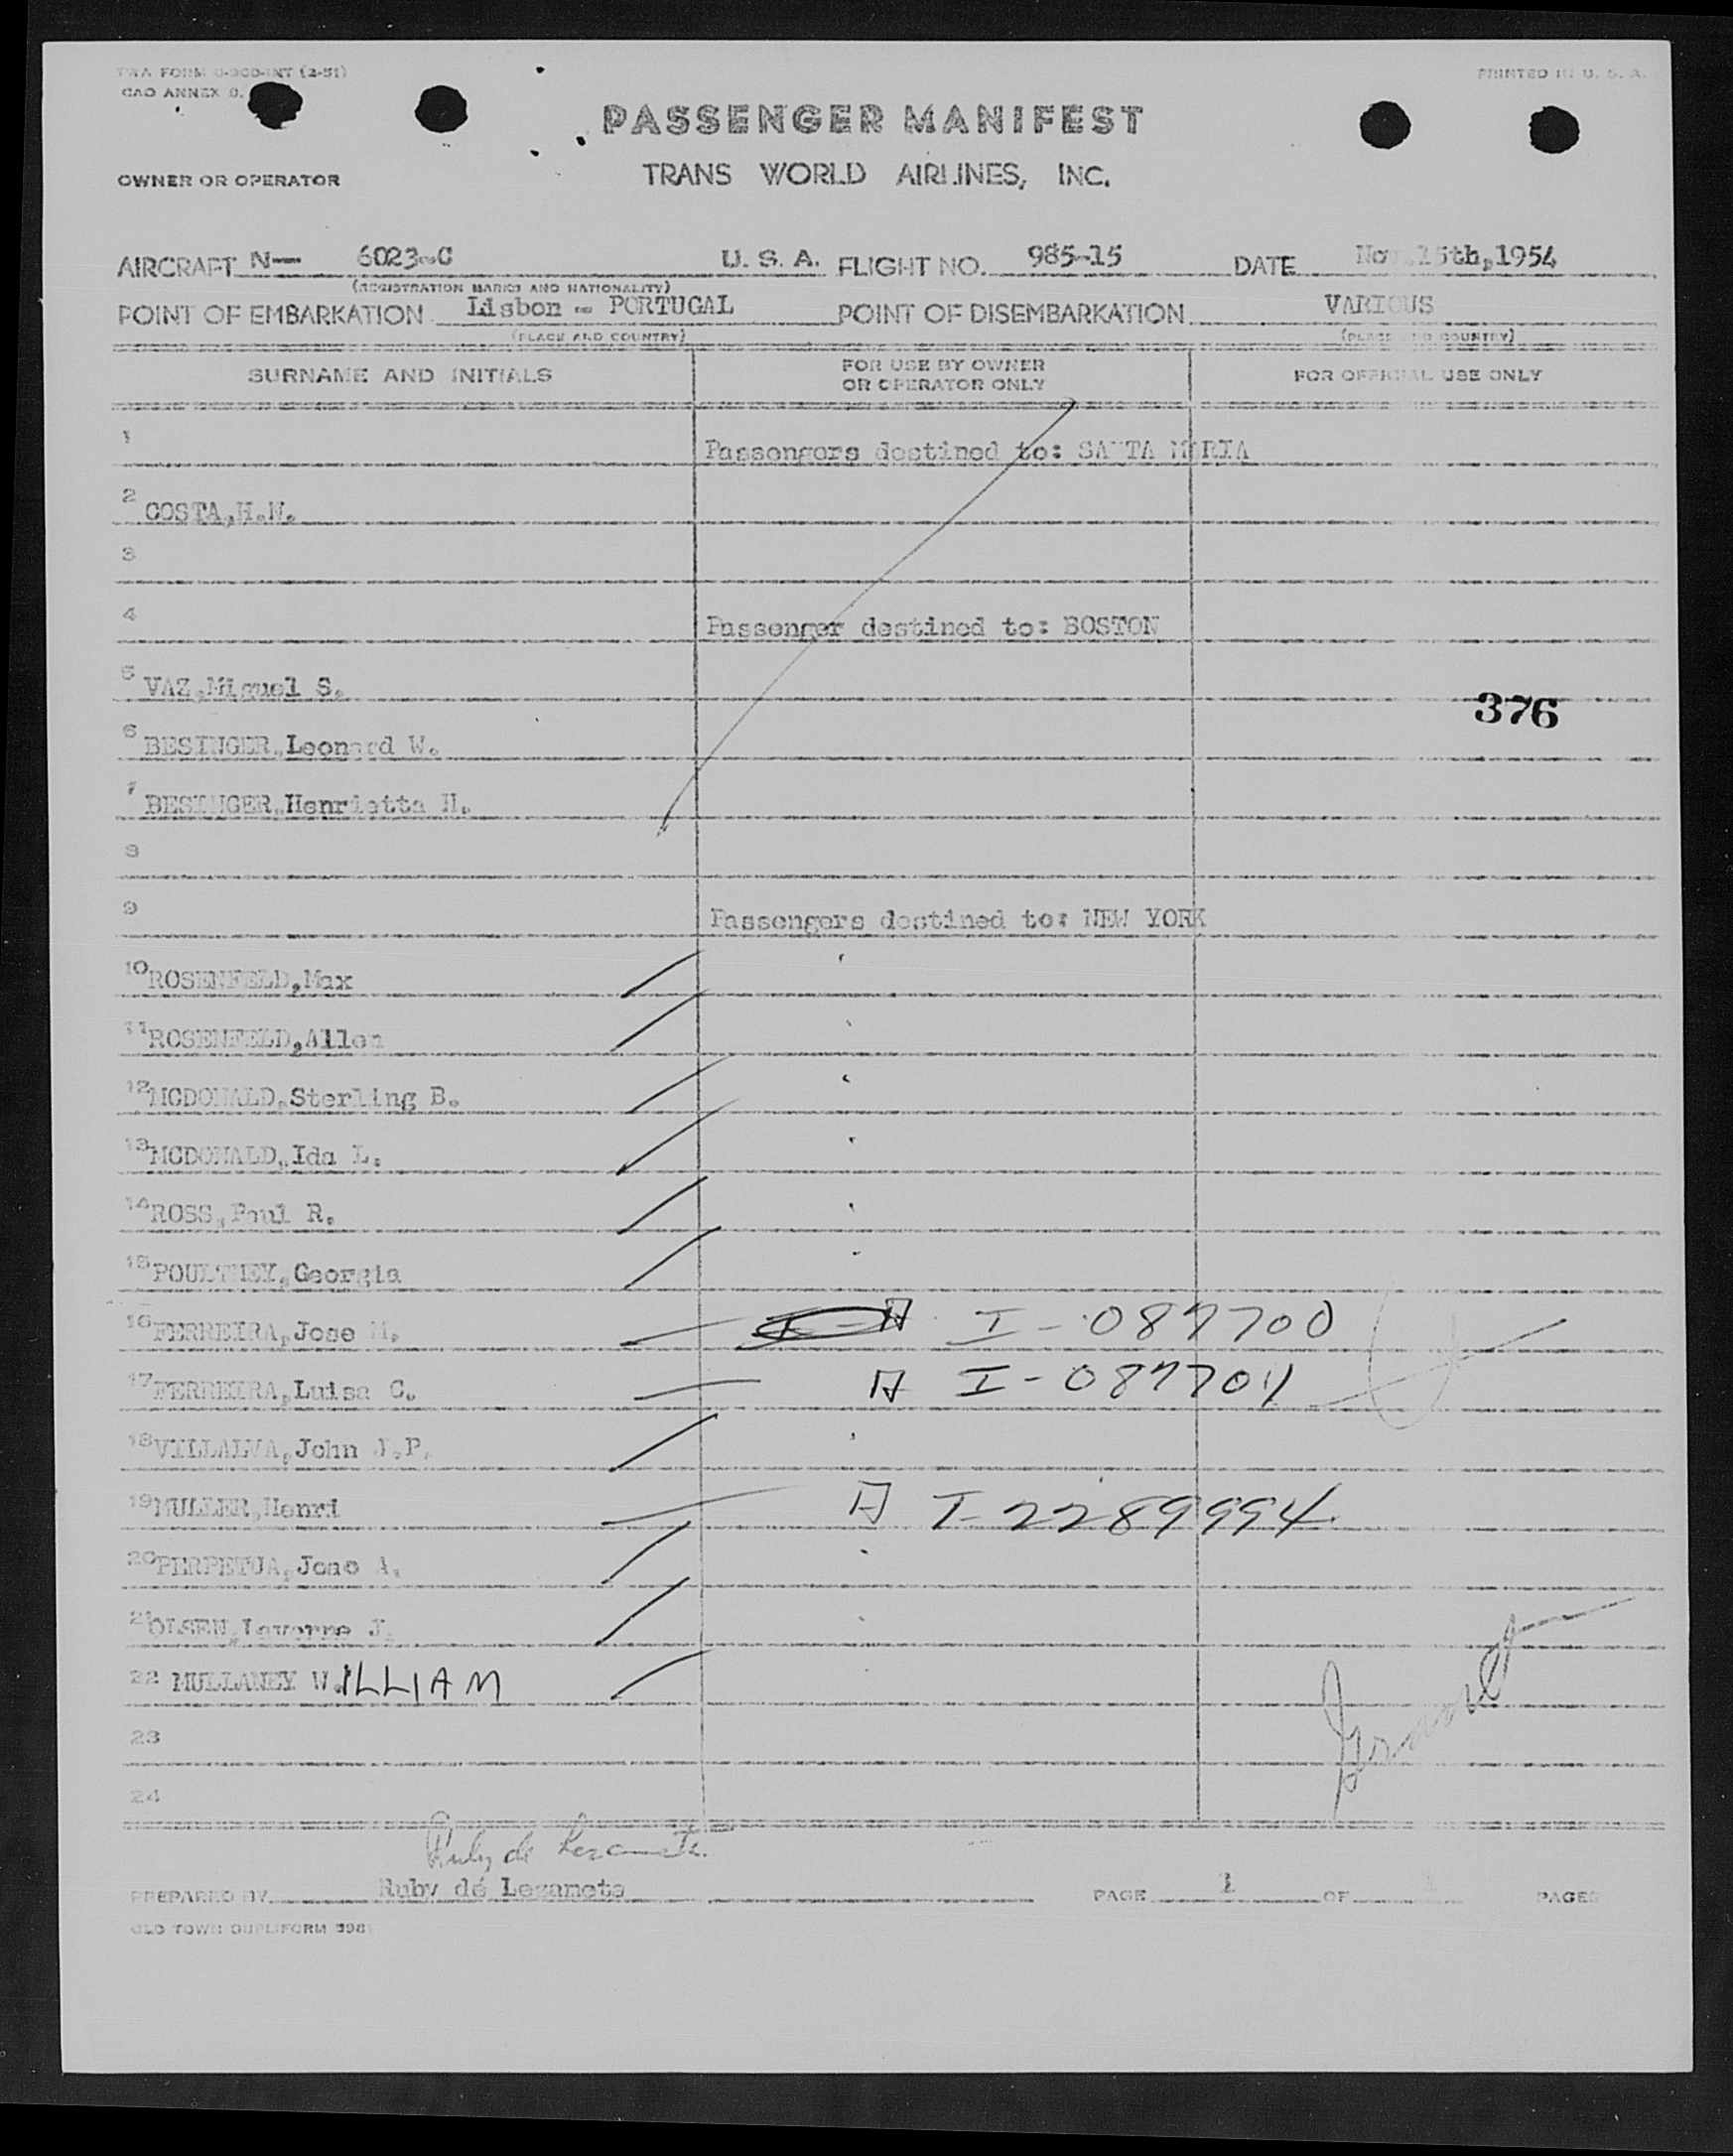 TWA FORM
PRINTED IN U. S. A.
CAO ANNEX 9.
PASSENGER MANIFEST
OWNER OR OPERATOR TRANS WORLD AIRLINES, INC.
AIRCRAFT N— 6023-C U. S. A. FLIGHT NO. 985-15 DATE Nov.15th,1954
(REGISTRATION MARKS AND NATIONALITY)
POINT OF EMBARKATION Lisbon - PORTUGAL POINT OF DISEMBARKATION VARIOUS
(PLACE AND COUNTRY) (PLACE AND COUNTRY)
SURNAME AND INITIALS FOR USE BY OWNER OR OPERATOR ONLY FOR OFFICIAL USE ONLY
1 Passengers destined to: SANTA MARIA
2 COSTA,
3
4 Passenger destined to: BOSTON
5 VAZ,Miguel S.
376
6 BESINGER,Leonard W.
7 BESINGER,Henrietta H.
8
9 Passengers destined to: NEW YORK
10 ROSENFELD,Max
11 ROSENFELD,Allen
12 MCDONALD,Sterling B.
13 MCDONALD,Ida L.
14 ROSS,Paul R.
15 POULTNEY,Georgia
16 FERREIRA,Jose M. A I-087700
17 FERREIRA,Luisa C. A I-087701
18 VILLALVA,John J.P.
19 MULLER,Henri A I-2289994
20 PERPETUA,Joao A.
21 OLSEN,Laverne J.
22 MULLANEY W.ILLIAM
23
24
Ruby de
PREPARED BY Ruby dé Lezameta PAGE 1 OF PAGES
OLD TOWN DUPLIFORM